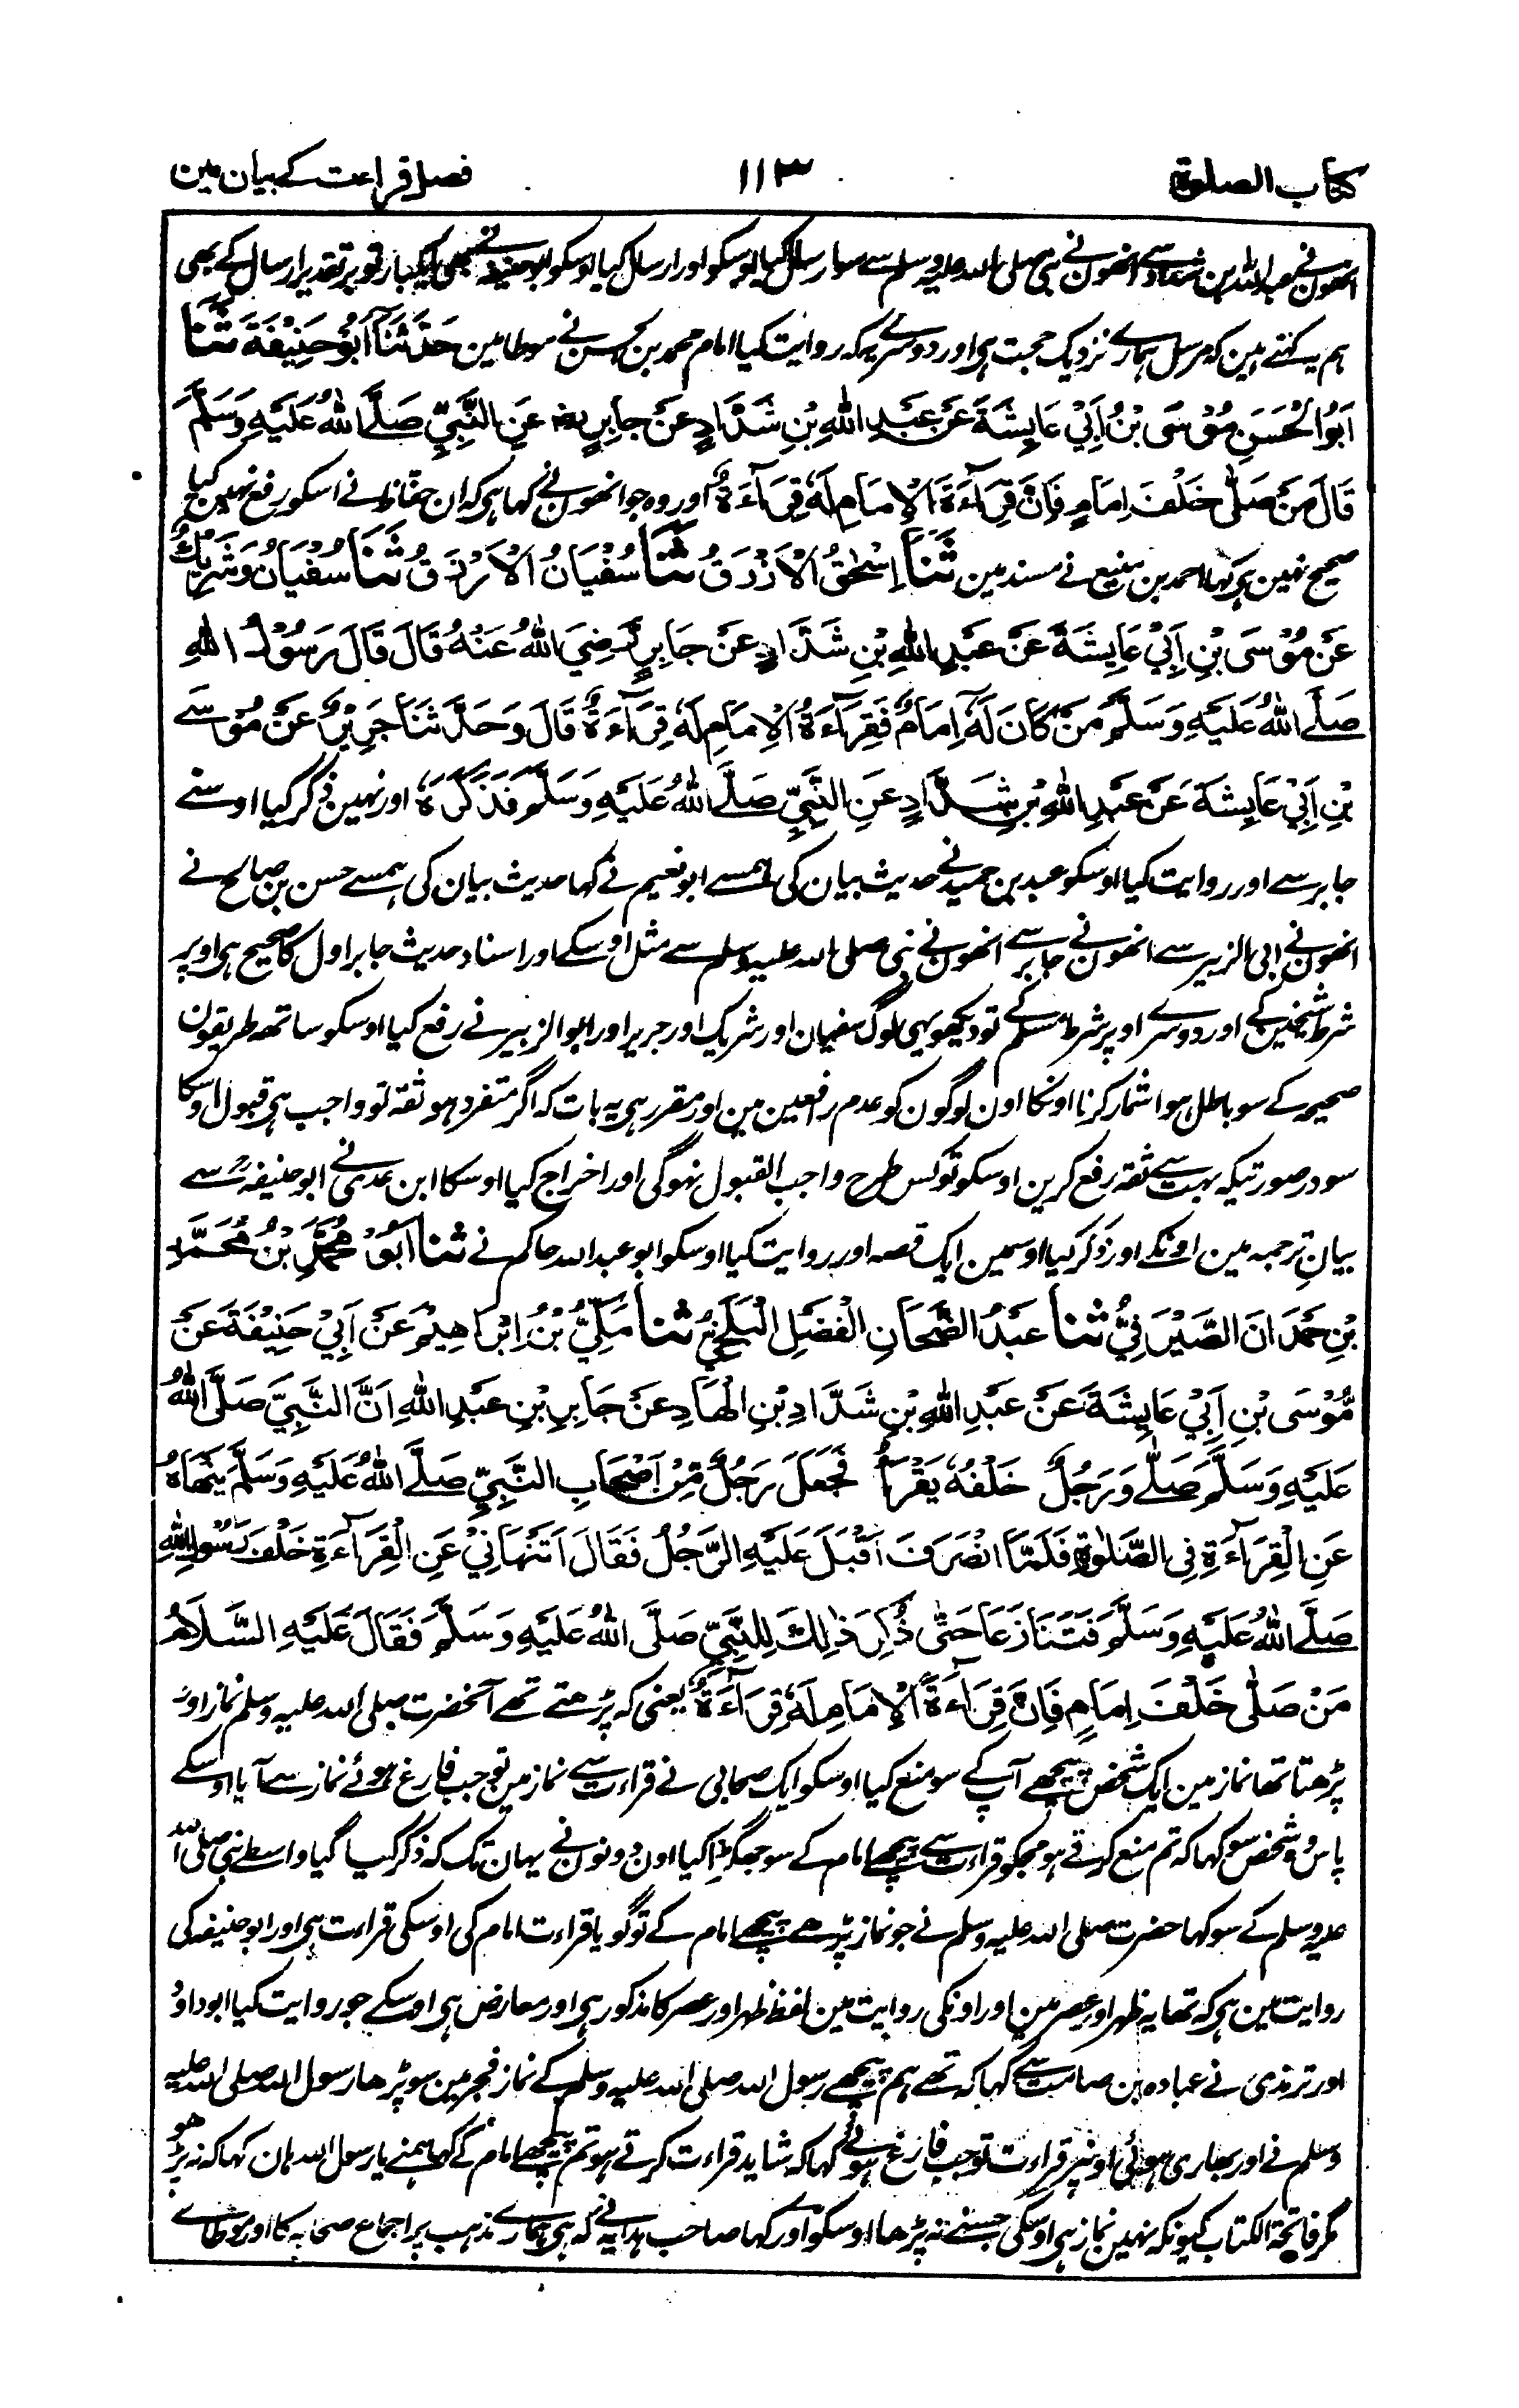 کتاب الصلوة ۱۱۳ فصل قراءت کے بیان مین
انھون نے عبداللہ بن شداد سے انھون نے نبی صلی اللہ علیہ وسلم سے سو ارسال کیا اوسکو اور ارسال کیا اوسکو ابوحنیفہ نے بھی ایکبار تو بر تقدیر ارسال کے بھی
ہم یہ کہتے ہین کہ مرسل ہمارے نزدیک حجت ہی اور دوسرے یہ کہ روایت کیا امام محمد بن الحسن نے موطا مین حَدَّثَنَا اَبُوْ حَنِيْفَةَ ثَنَا
اَبُو الْحَسَنِ مُوْسَى بْنُ اَبِيْ عَايِشَةَ عَنْ عَبْدِ اللهِ بْنِ شَدَّادٍ عَنْ جَابِرٍ رضہ عَنِ النَّبِيِّ صَلَّى اللهُ عَلَيْهِ وَسَلَّمَ
قَالَ مَنْ صَلّٰى خَلْفَ اِمَامٍ فَاِنَّ قِرَآءَةَ الْاِمَامِ لَهٗ قِرَآءَةٌ اور وہ جو انھون نے کہا ہی کہ ان حفاظ نے اسکو رفع نہین کیا
صحیح نہین ہی کہا احمد بن منیع نے مسند مین ثَنَا اِسْحٰقُ الْاَزْرَقُ ثَنَا سُفْيَانُ الْاَزْرَقُ ثَنَا سُفْيَانُ وَشَرِيْكٌ
عَنْ مُوْسَى بْنِ اَبِيْ عَايِشَةَ عَنْ عَبْدِ اللهِ بْنِ شَدَّادٍ عَنْ جَابِرٍ رَضِيَ اللهُ عَنْهُ قَالَ قَالَ رَسُوْلُ اللهِ
صَلَّى اللهُ عَلَيْهِ وَسَلَّمَ مَنْ كَانَ لَهٗ اِمَامٌ فَقِرَآءَةُ الْاِمَامِ لَهٗ قِرَآءَةٌ قَالَ وَحَدَّثَنَا جَرِيْرٌ عَنْ مُوْسَى
بْنِ اَبِيْ عَايِشَةَ عَنْ عَبْدِ اللهِ بْنِ شَدَّادٍ عَنِ النَّبِيِّ صَلَّى اللهُ عَلَيْهِ وَسَلَّمَ فَذَكَرَهٗ اور نہین ذکر کیا اوسنے
جابر سے اور روایت کیا اوسکو عبد بن حمید نے حدیث بیان کی ہمسے ابونعیم نے کہا حدیث بیان کی ہمسے حسن بن صالح نے
انھون نے ابی الزبیر سے انھون نے جابر سے انھون نے نبی صلی اللہ علیہ وسلم سے مثل اوسکے اور اسناد حدیث جابر اول کا صحیح ہی اوپر
شرط شیخین کے اور دوسرے اوپر شرط مسلم کے تو دیکھو یہی لوگ سفیان اور شریک اور جریر اور ابوالزبیر نے رفع کیا اوسکو ساتھ طریقون
صحیحہ کے سو باطل ہوا شمار کرنا اونکا اون لوگون کو عدم رافعین مین اور مقرر ہی یہ بات کہ اگر متفرد ہو ثقہ تو واجب ہی قبول اوسکا
سو در صورتیکہ بہت سے ثقہ رفع کرین اوسکو تو کس طرح واجب القبول نہوگی اور اخراج کیا اوسکا ابن عدی نے ابوحنیفہؒ سے
بیان ترجمہ مین اونکے اور ذکر کیا اوسمین ایک قصہ اور روایت کیا اوسکو ابو عبداللہ حاکم نے ثَنَا اَبُوْ مُحَمَّدِ بْنُ مُحَمَّدِ
بْنِ حَمْدَانَ الصَّيْرَفِيُّ ثَنَا عَبْدُ الصَّمَدِ الْفَضْلِ الْبَلْخِيُّ ثَنَا مَكِّيُّ بْنُ اِبْرَاهِيْمَ عَنْ اَبِيْ حَنِيْفَةَ عَنْ
مُّوْسَى بْنِ اَبِيْ عَايِشَةَ عَنْ عَبْدِ اللهِ بْنِ شَدَّادِ بْنِ الْهَادِ عَنْ جَابِرِ بْنِ عَبْدِ اللهِ اَنَّ النَّبِيَّ صَلَّى اللهُ
عَلَيْهِ وَسَلَّمَ صَلّٰى وَرَجُلٌ خَلْفَهٗ يَقْرَأُ فَجَعَلَ رَجُلٌ مِّنْ اَصْحَابِ النَّبِيِّ صَلَّى اللهُ عَلَيْهِ وَسَلَّمَ يَنْهَاهُ
عَنِ الْقِرَآءَةِ فِي الصَّلٰوةِ فَلَمَّا انْصَرَفَ اَقْبَلَ عَلَيْهِ الرَّجُلُ فَقَالَ اَتَنْهَانِيْ عَنِ الْقِرَآءَةِ خَلْفَ رَسُوْلِ اللهِ
صَلَّى اللهُ عَلَيْهِ وَسَلَّمَ فَتَنَازَعَا حَتّٰى ذُكِرَ ذٰلِكَ لِلنَّبِيِّ صَلَّى اللهُ عَلَيْهِ وَسَلَّمَ فَقَالَ عَلَيْهِ السَّلَامُ
مَنْ صَلّٰى خَلْفَ اِمَامٍ فَاِنَّ قِرَآءَةَ الْاِمَامِ لَهٗ قِرَآءَةٌ یعنی کہ پڑھتے تھے آنحضرت صلی اللہ علیہ وسلم نماز اور
پڑھتا تھا نماز مین ایک شخص پیچھے آپ کے سو منع کیا اوسکو ایک صحابی نے قراءت سے نماز مین تو جب فارغ ہوئے نماز سے آیا اوسکے
پاس وہ شخص سو کہا کہ تم منع کرتے ہو مجکو قراءت سے پیچھے امام کے سو جھگڑا کیا اون دونون نے یہان تک کہ ذکر کیا گیا واسطے نبی صلی اللہ
علیہ وسلم کے سو کہا حضرت صلی اللہ علیہ وسلم نے جو نماز پڑھے پیچھے امام کے تو گویا قراءت امام کی اوسکی قراءت ہی اور ابوحنیفہ کی
روایت مین ہی کہ تھا یہ ظہر اور عصر مین اور اونکی روایت مین لفظ ظہر اور عصر کا مذکور ہی اور معارض ہی اوسکے جو روایت کیا ابوداؤد
اور ترمذی نے عبادہ بن صامت سے کہا کہ تھے ہم پیچھے رسول اللہ صلی اللہ علیہ وسلم کے نماز فجر مین سو پڑھا رسول اللہ صلی اللہ علیہ
وسلم نے اور بھاری ہوئی اونپر قراءت تو جب فارغ ہوئے کہا کہ شاید قراءت کرتے ہو تم پیچھے امام کے کہا ہمنے یا رسول اللہ ہان کہا کہ نہ پڑھو
مگر فاتحة الکتاب کیونکہ نہین نماز ہی اوسکی جسنے نہ پڑھا اوسکو اور کہا صاحب ہدایہ نے کہ ہی ہمارے مذہب پر اجماع صحابہ کا اور موطا ے